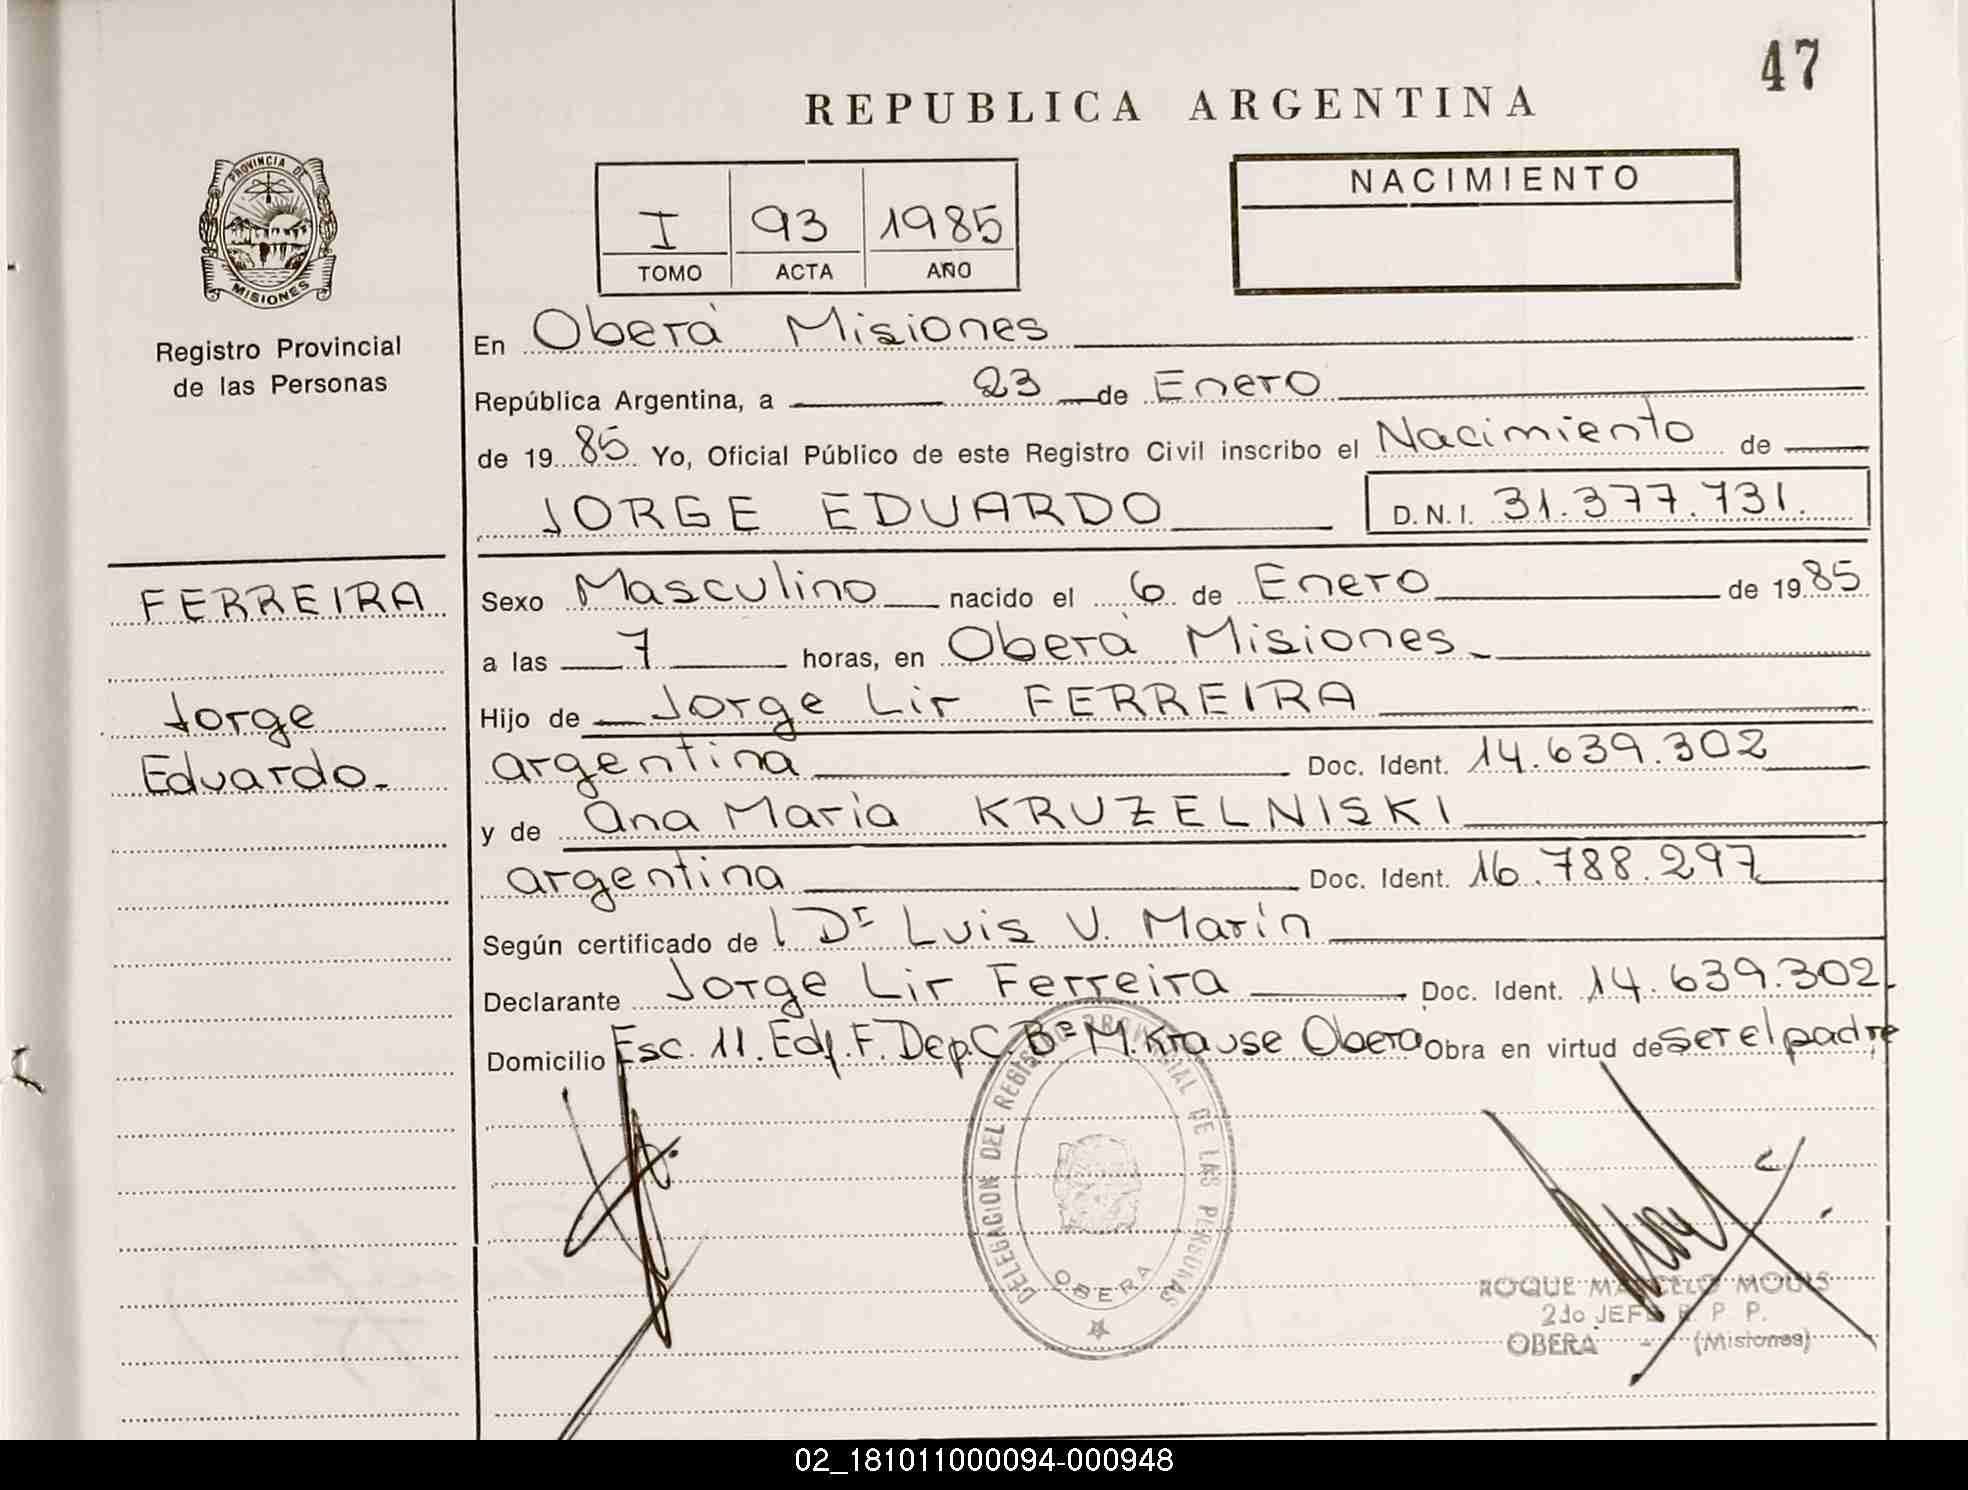 47
REPUBLICA ARGENTINA
PROVINCIA DE
MISIONES
Registro Provincial
de las Personas
I 93 1985
TOMO ACTA AÑO
NACIMIENTO
En Oberá Misiones
República Argentina, a 23 de Enero
de 19 85 Yo, Oficial Público de este Registro Civil inscribo el Nacimiento de
JORGE EDUARDO D.N.I. 31.377.731.
FERREIRA
Jorge
Eduardo.
Sexo Masculino nacido el 6 de Enero de 19 85
a las 7 horas, en Oberá Misiones
Hijo de Jorge Lir FERREIRA
argentina Doc. Ident. 14.639.302
y de Ana María KRUZELNISKI
argentina Doc. Ident. 16.788.297
Según certificado de l Dr Luis V. Marín
Declarante Jorge Lir Ferreira Doc. Ident. 14.639.302
Domicilio Esc. 11. Edf. F. Dep. C. Bº M. Krause Obera Obra en virtud de ser el padre
DELEGACION DEL REGISTRO PROVINCIAL DE LAS PERSONAS
OBERA
ROQUE MARCELO MOUIS
2do JEFE R. P. P.
OBERA - (Misiones)
02_181011000094-000948